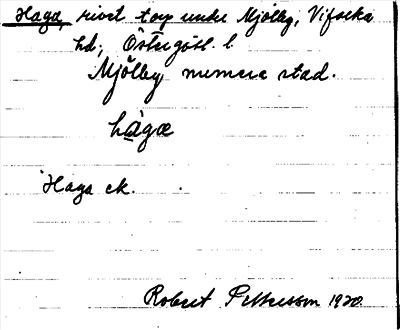 Haga, rivet torp under Mjölby, Vifolka
hd, Östergötl. l.
Mjölby numera stad.
hàgæ
Haga ek.
Robert Pettersson 1920